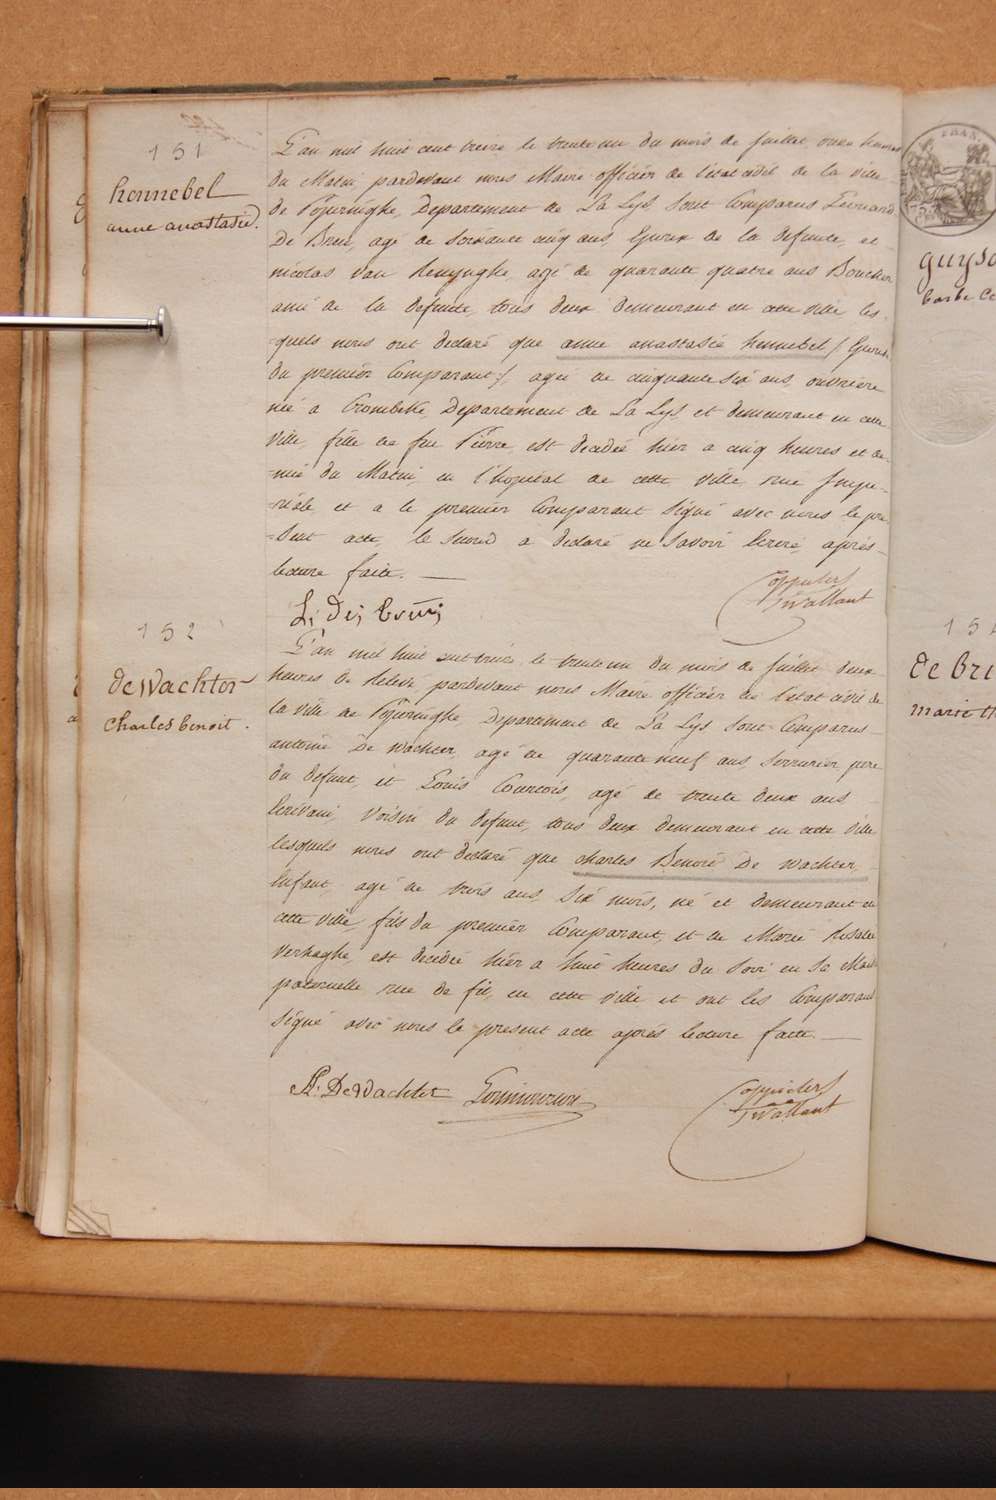 151
hennebel
anne anastasie.
L'an mil huit cent treize le trente un du mois de Juillet onze heures
du Matin pardevant nous Maire officier de l'état civil de la ville
de Poperinghe, Departement de La Lys sont Comparus Leonard
De Brui, agé de soixante cinq ans, Epoux de la defunte, et
nicolas Van Renynghe, agé de quarante quatre ans Boucher
ami de la defunte, tous deux demeurant en cette ville les-
-quels nous ont declaré que anne anastasie hennebel / Epouse
du premier Comparant /, agée de cinquante six ans, ouvrière
née a Crombeke, Departement de La Lys et demeurant en cette
Ville, fille de feu Pierre, est decedée hier a cinq heures et de-
-mie du Matin, en l'hopital de cette ville rue Impe-
-riale, et a le premier Comparant signé avec nous le pre-
-sent acte, le second a declaré ne savoir Ecrire après
lecture faite.
L. De Brui
152
deWachter
Charles benoit.
L'an mil huit cent treize le trente un du mois de Juillet deux
heures de Relevé, pardevant nous Maire officier de l'état civil de
la ville de Poperinghe, Departement de La Lys sont Comparus
antoine De Wachter, agé de quarante neuf ans serrurier pere
du defunt, et Louis Courtois, agé de trente deux ans
Ecrivain, Voisin du defunt, tous deux demeurant en cette Ville
lesquels nous ont declaré que charles Benoit De Wachter,
Enfant agé de trois ans, six mois, né et demeurant en
cette ville, fils du premier Comparant, et de Marie Rosalie
Verhaghe, est decedée hier a huit heures du Soir en Sa Mais
paternelle rue de fu, en cette ville et ont les Comparans
signé avec nous le present acte après lecture faite.
A. DeWachter
guys
barbe
15
de bri
marie th
FRAN